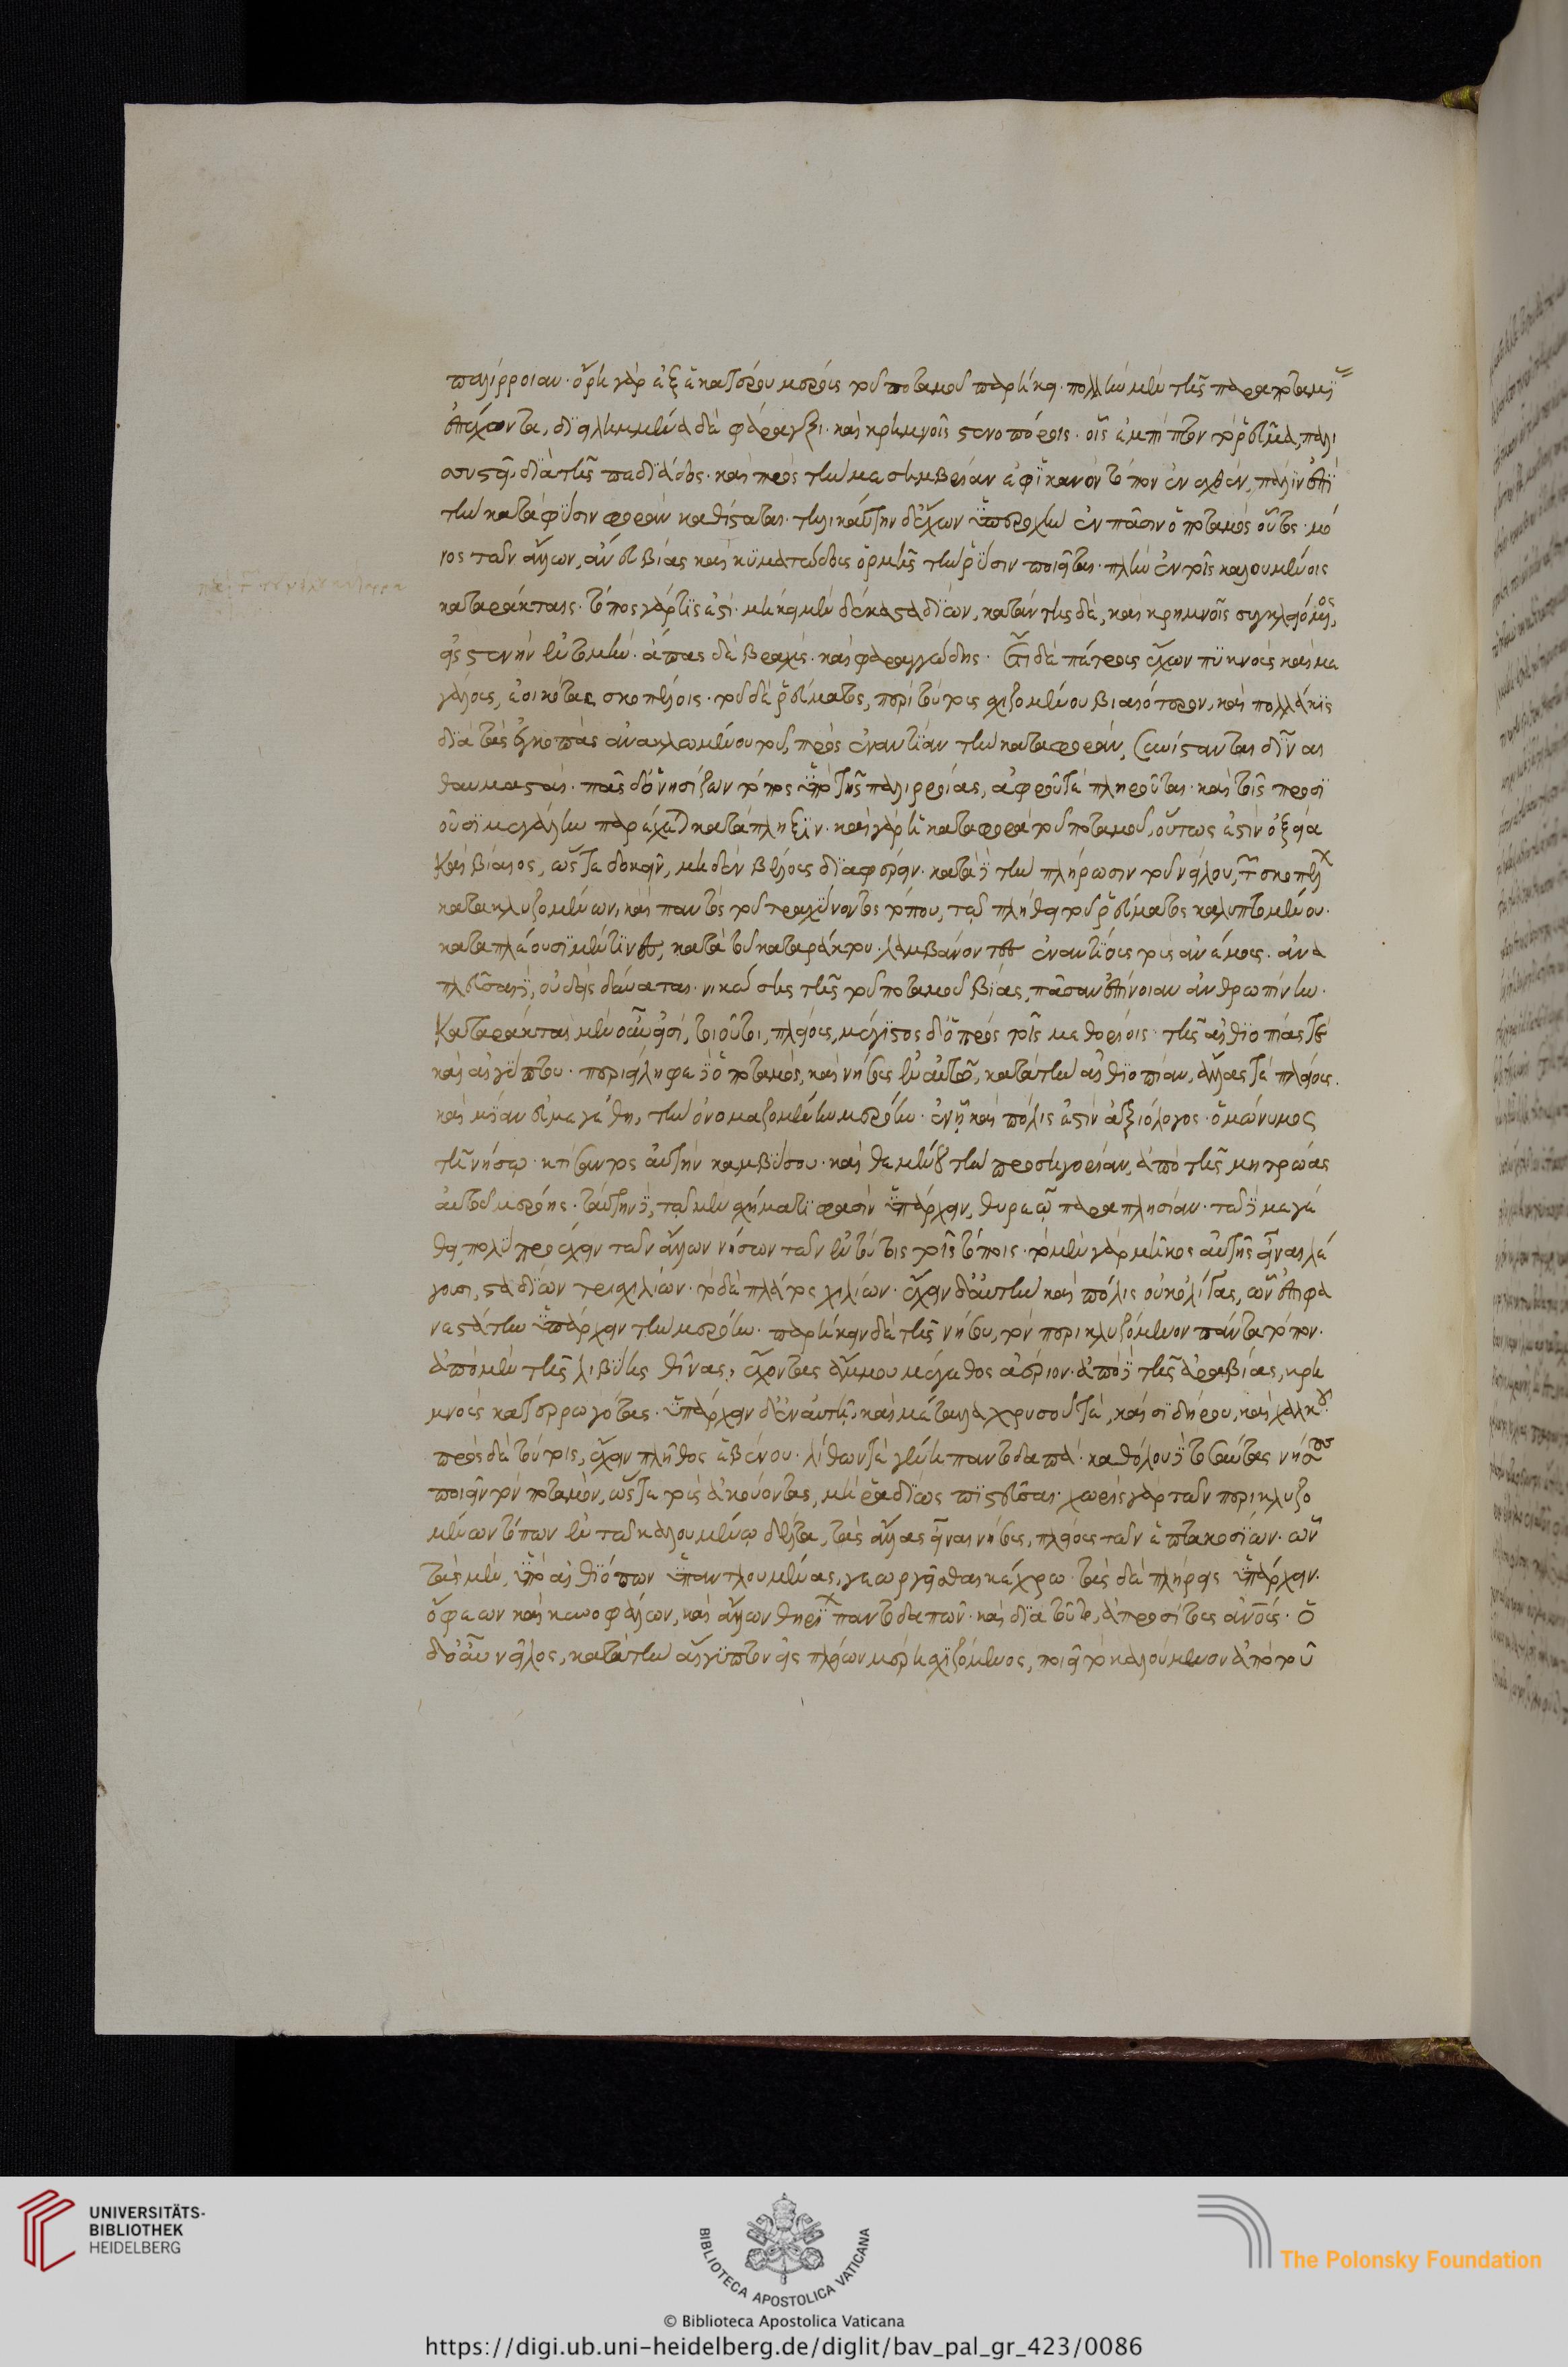 παλίρροιαν· ὄρη γὰρ ἐξ ἑκατέρου μέρους τοῦ ποταμοῦ παρήκει· πολλὴν μὲν τῆς παραποταμίας
ἐπέχοντα, διειλημμένα δὲ φάραγξι· καὶ κρημνοῖς στενοπόροις· οἷς ἐμπίπτον τὸ ῥεῦμα, παλι
συστεῖ διὰ τῆς πεδιάδος· καὶ πρὸς τὴν μεσημβρίαν ἐφ ἱκανὸν τόπον ἐνεχθὲν, πάλιν ἐπὶ
τὴν κατὰ φύσιν φορὰν καθίσταται. τηλικαύτην δ' ἔχων ὑπεροχὴν ἐν πᾶσιν ὁ ποταμὸς οὗτος· μό
νος τῶν ἄλλων, ἄνευ βίας καὶ κυματώδους ὁρμῆς τὴν ῥύσιν ποιεῖται· πλὴν ἐν τοῖς καλουμένοις
καταράκταις· τόπος γάρ τίς ἐστι· μήκει μὲν δέκα σταδίων, κατάντης δὲ, καὶ κρημνοῖς συγκλειόμενος,
εἰς στενὴν ἐντομήν· ἅπας δὲ βραχὺς· καὶ φαραγγώδης· ἔτι δὲ πέτρους ἔχων πυκνοὺς καὶ με
γάλους, ἐοικότας σκοπέλοις· τοῦ δὲ ῥεύματος, περὶ τούτους σχιζομένου βιαιότερον, καὶ πολλάκις
διὰ τὰς ἐγκοπὰς ἀνακλωμένου τοῦ, πρὸς ἐναντίαν τὴν καταφορὰν, συνίστανται δῖναι
θαυμασταί· πᾶς δ' ὁ νησίζων τόπος ὑπὸ τῆς παλιρροίας, ἀφροῦ τε πληροῦται· καὶ τοῖς προσι
οῦσι μεγάλην παρέχεται κατάπληξιν· καὶ γὰρ ἡ καταφορὰ τοῦ ποταμοῦ, οὕτως ἐστὶν ὀξεῖα
καὶ βίαιος, ὥστε δοκεῖν, μηδὲν βέλους διαφέρειν· κατὰ δὲ τὴν πλήρωσιν τοῦ νείλου, τῶν σκοπέλων
κατακλυζομένων, καὶ παντὸς τοῦ τραχύνοντος τόπου, τῷ πλήθει τοῦ ῥεύματος καλυπτομένου·
καταπλέουσι μέν τινες, κατὰ τοῦ καταράκτου· λαμβάνοντες ἐναντίους τοὺς ἀνέμους. ἀνα
πλεῦσαι δὲ, οὐδεὶς δύναται· νικώσης τῆς τοῦ ποταμοῦ βίας, πᾶσαν ἐπίνοιαν ἀνθρωπίνην.
Καταράκται μὲν οὖν εἰσὶ, τοιοῦτοι, πλείους, μέγιστος δ' ὁ πρὸς τοῖς μεθορίοις· τῆς αἰθιοπίας τε
καὶ αἰγύπτου· περιείληφε δὲ ὁ ποταμὸς, καὶ νήσους ἐν αὑτῷ, κατὰ τὴν αἰθιοπίαν, ἄλλας τὲ πλείους.
καὶ μίαν εὐμεγέθη, τὴν ὀνομαζομένην μερόην· ἐν ᾗ καὶ πόλις ἐστὶν ἀξιόλογος· ὁμώνυμος
τῇ νήσῳ· κτίσαντος αὐτὴν καμβύσου· καὶ θεμένου τὴν προσηγορίαν, ἀπὸ τῆς μητρὸς
αὐτοῦ μερόης· ταύτην δὲ, τῷ μὲν σχήματι φασὶν ὑπάρχειν, θυρεῷ παραπλησίαν· τῷ δὲ μεγέ
θει πολὺ προέχειν τῶν ἄλλων νήσων τῶν ἐν τούτοις τοῖς τόποις· τὸ μὲν γὰρ μῆκος αὐτῆς εἶναι λέ
γουσι, σταδίων τρισχιλίων· τὸ δὲ πλάτος χιλίων· ἔχειν δ' αὐτὴν καὶ πόλις οὐκ ὀλίγας, ὧν ἐπιφα
νεστάτην ὑπάρχειν τὴν μερόην· παρήκειν δὲ τῆς νήσου, τὸν περικλυζόμενον πάντα τόπον·
ἀπὸ μὲν τῆς λιβύης θῖνας, ἔχοντας ἄμμου μέγεθος ἀέριον· ἀπὸ δὲ τῆς ἀραβίας, κρη
μνοὺς κατερρωγότας· ὑπάρχειν δ' ἐν αὐτῇ καὶ μέταλλα χρυσοῦ τὲ, καὶ σιδήρου, καὶ χαλκοῦ·
πρὸς δὲ τούτοις, ἔχειν πλῆθος ἐβένου· λίθων τὲ γένη παντοδαπά· καθόλου δὲ τοσαύτας νήσους
ποιεῖν τὸν ποταμὸν, ὥστε τοὺς ἀκούοντας, μὴ ῥᾳδίως πιστεῦσαι· χωρὶς γὰρ τῶν περικλυζο
μένων τόπων ἐν τῷ καλουμένῳ δέλτα, τὰς ἄλλας εἶναι νήσους, πλείους τῶν ἑπτακοσίων· ὧν
τὰς μὲν, ὑπὸ αἰθιόπων ὑπαντλουμένας, γεωργεῖσθαι κέχρῳ· τὰς δὲ πλήρεις ὑπάρχειν·
ὄφεων καὶ κυνοκεφάλων, καὶ ἄλλων θηρίων παντοδαπῶν· καὶ διὰ τοῦτο, ἀπροσίτους ἀνθρώποις· ὁ
δ' οὖν νεῖλος, κατὰ τὴν αἴγυπτον εἰς πλείω μέρη σχιζόμενος, ποιεῖ τὸ καλούμενον ἀπὸ τοῦ
UNIVERSITÄTS-
BIBLIOTHEK
HEIDELBERG
BIBLIOTECA APOSTOLICA VATICANA
The Polonsky Foundation
© Biblioteca Apostolica Vaticana
https://digi.ub.uni-heidelberg.de/diglit/bav_pal_gr_423/0086